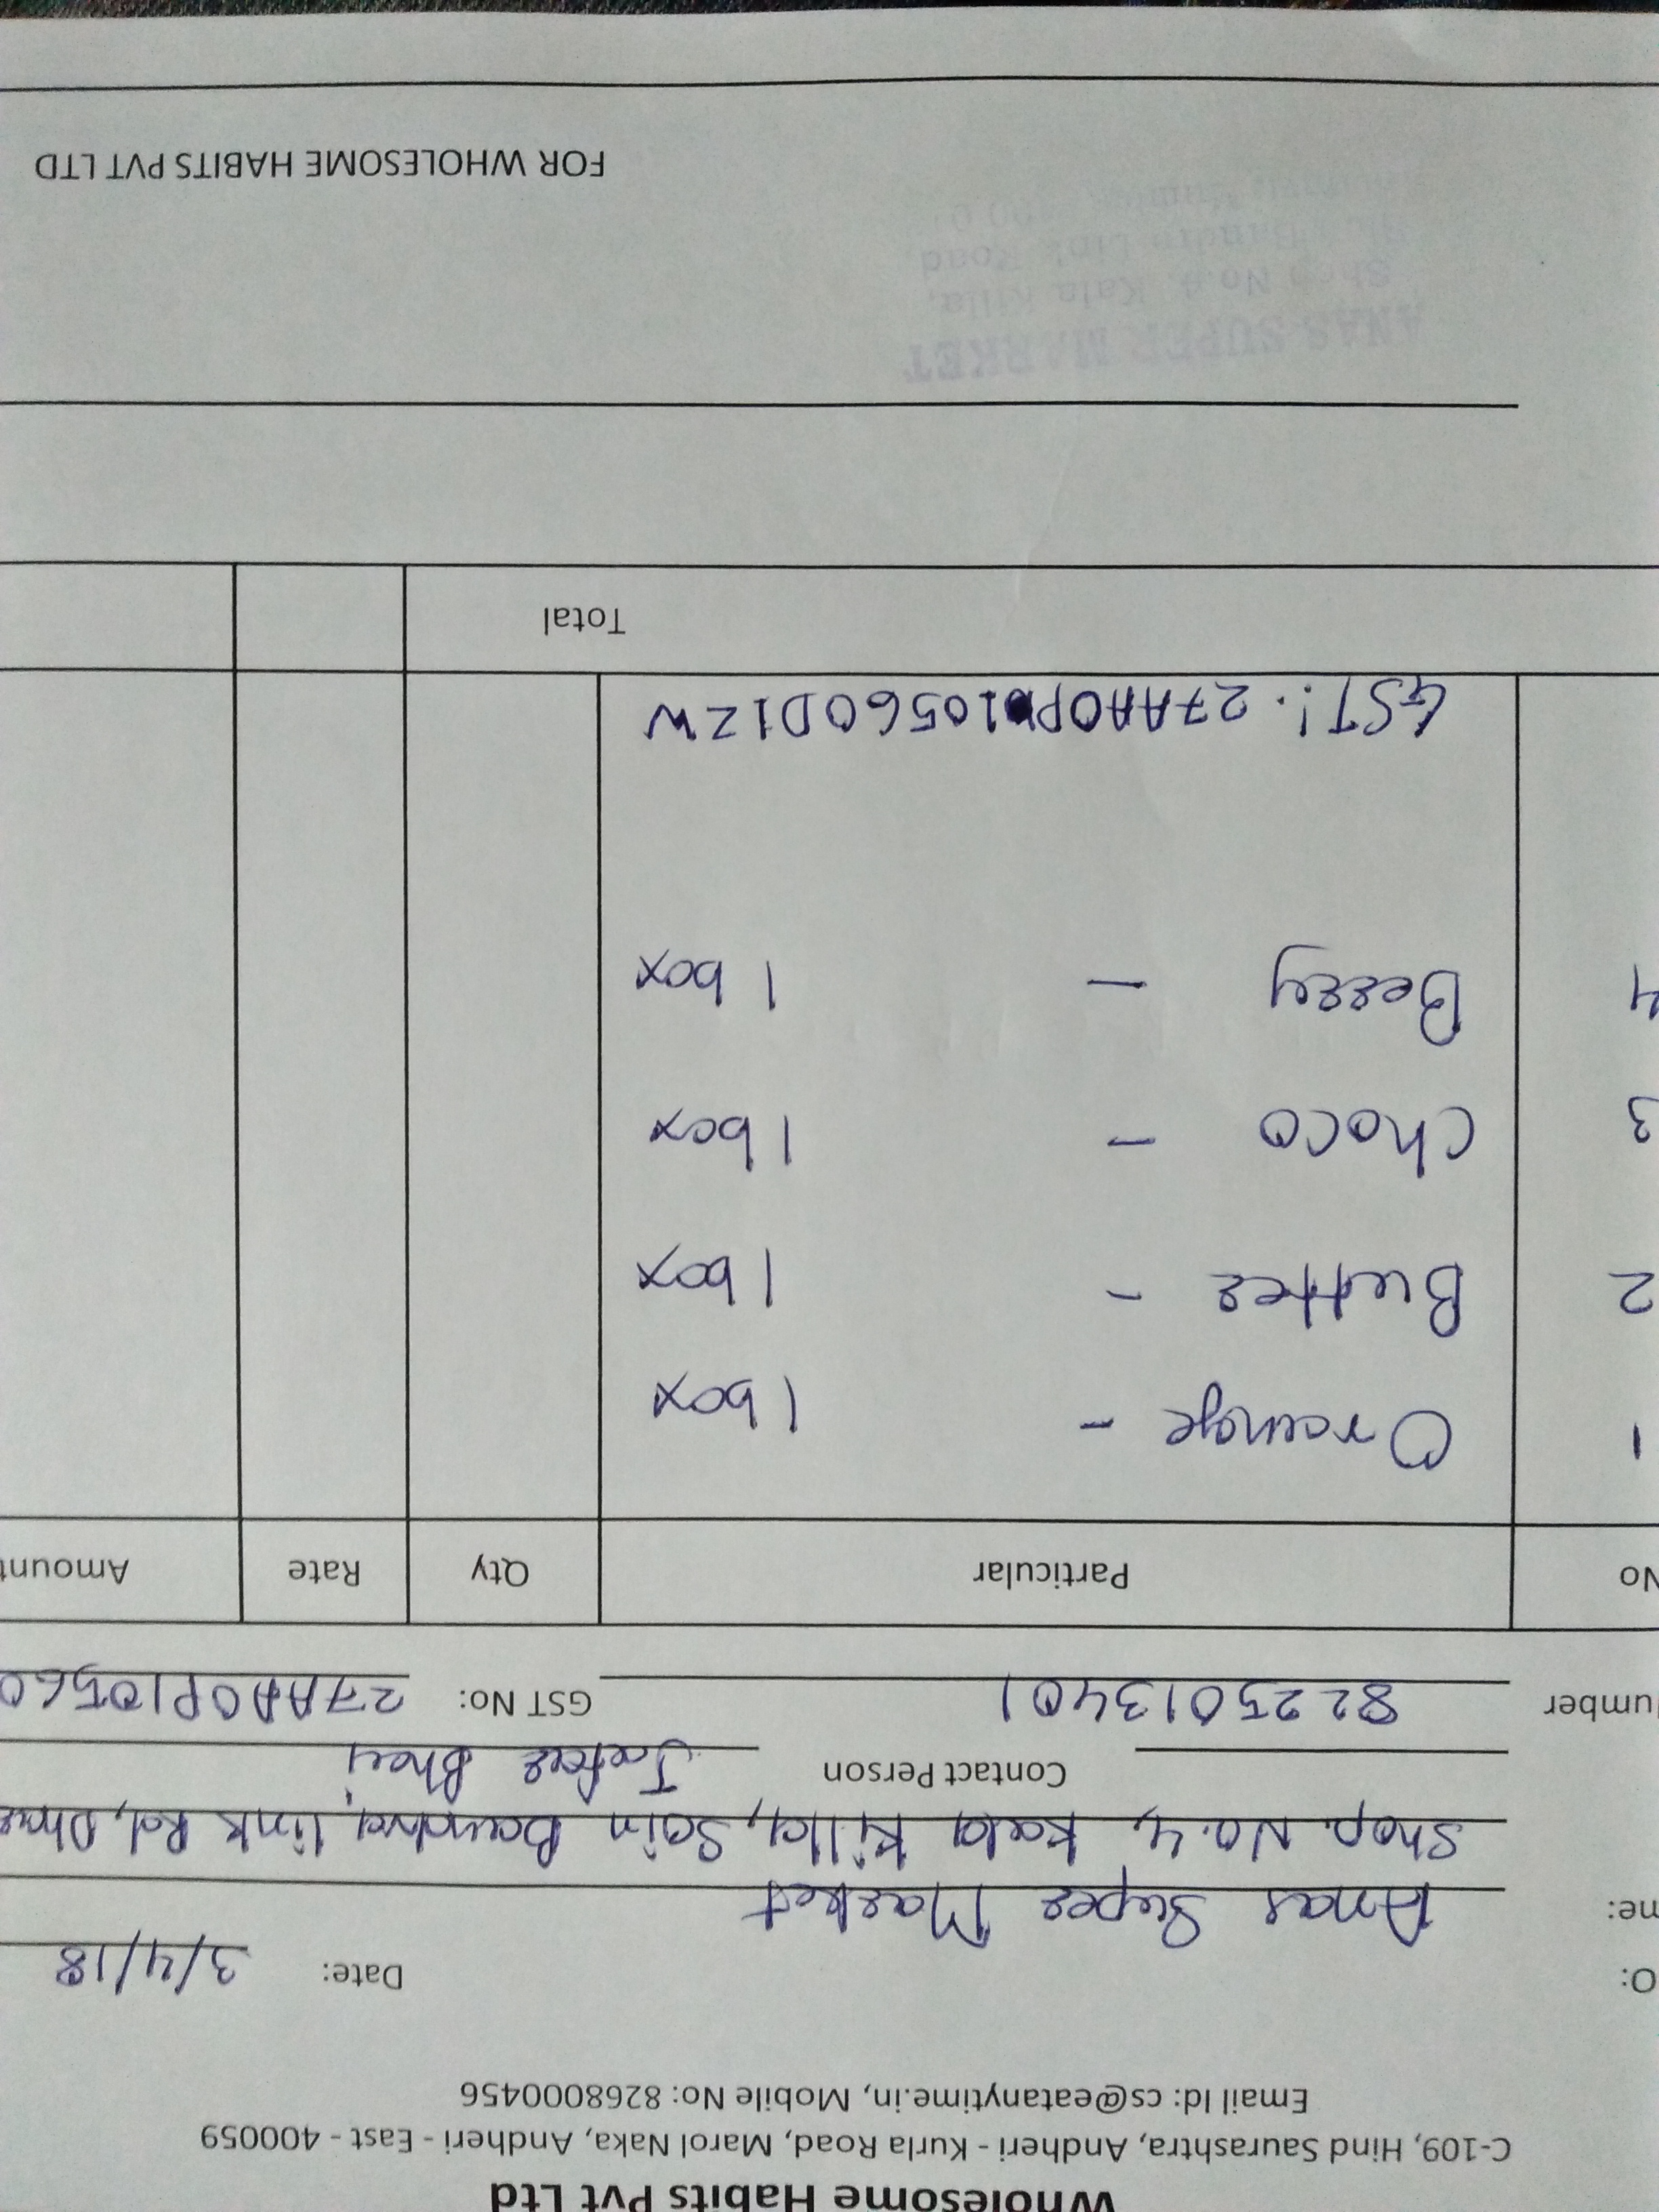 Wholesome Habits Pvt Ltd
C-109, Hind Saurashtra, Andheri - Kurla Road, Marol Naka, Andheri - East - 400059
Email Id: cs@eatanytime.in, Mobile No: 8268000456
O: Date: 3/4/18
me: Anas Super Market
Shop. No. 4, Kala Killa, Sain Bandra link Rd, Dhar
Contact Person Jafar Bhai
Number 8225013401 GST No: 27AAOP10560
No Particular Qty Rate Amount
1 Orange - 1 box
2 Butter - 1 box
3 Choco - 1 box
4 Berry - 1 box
GST:. 27AAOP10560D1ZW
Total
ANAS SUPER MARKET
Shop No.4, Kala Killa,
Link Road,
FOR WHOLESOME HABITS PVT LTD